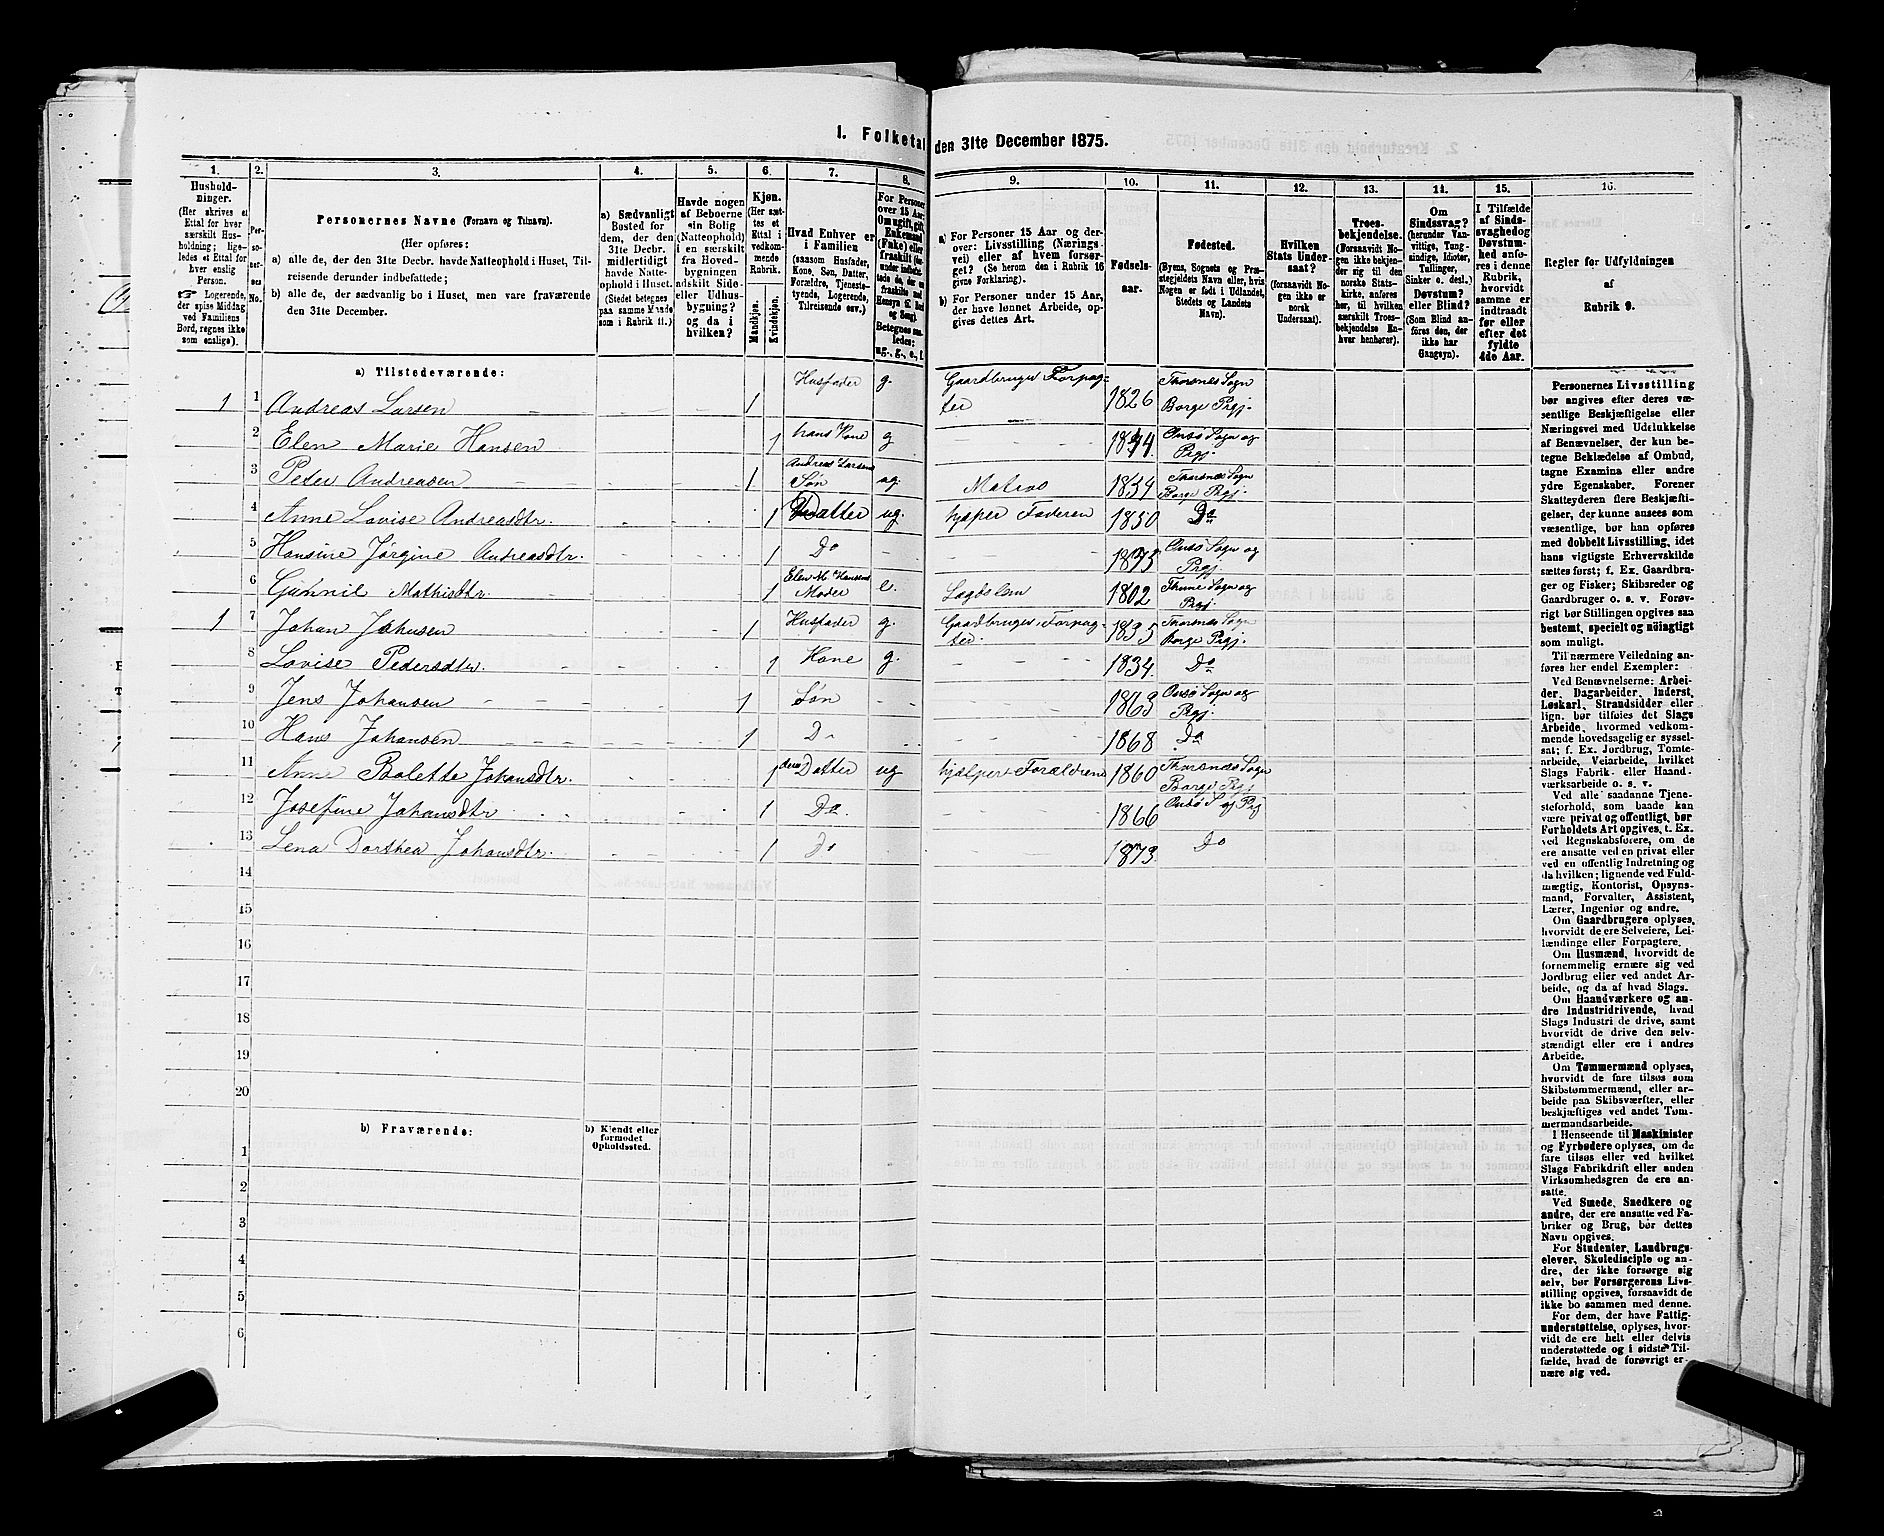 1. Folketal
den 31te December 1875.
1. 2. 3. 4. 5. 6. 7. 8. 9. 10. 11. 12. 13. 14. 15. 16.
Hushold-
ninger.
(Her skrives et
Ettal for hver
særskilt Hus-
holdning; lige-
ledes et Ettal for
hver enslig
Person.
☞ Logerende,
der spise Middag
ved Familiens
Bord, regnes ikke
som enslige).
Per-
so-
ner-
nes
No.
Personernes Navne (Fornavn og Tilnavn).
(Her opføres:
a) alle de, der den 31te Decbr. havde Natteophold i Huset, Til-
reisende derunder indbefattede;
b) alle de, der sædvanlig bo i Huset, men vare fraværende
den 31te December.
a) Sædvanligt
Bosted for
dem, der den
31te Decbr.
midlertidigt
havde Natte-
ophold i Huset.
(Stedet betegnes
paa samme Maade
som i Rubrik 11.)
Havde nogen
af Beboerne
sin Bolig
(Natteophold)
i en særskilt
fra Hoved-
bygningen
adskilt Side-
eller Udhus-
bygning?
og da i
hvilken?
Kjøn.
(Her sæt-
tes et
Ettal i
vedkom-
mende
Rubrik.
Mandkjøn.
Kvindekjøn.
Hvad Enhver er
i Familien
(saasom Husfader,
Kone, Søn, Datter,
Forældre, Tjeneste-
tyende, Logerende,
Tilreisende osv.)
For Personer
over 15 Aar:
Om ugift, gift,
Enkemand
(Enke) eller
fraskilt
Betegnes saa-
ledes:
ug., g., e., f.
a) For Personer 15 Aar og der-
over: Livsstilling (Nærings-
vei) eller af hvem forsør-
get? (Se herom den i Rubrik 16
givne Forklaring).
b) For Personer under 15 Aar,
der have lønnet Arbeide, op-
gives dettes Art.
Fødsels-
aar.
Fødested.
(Byens, Sognets og Præ-
stegjeldets Navn eller, hvis
Nogen er født i Udlandet,
Stedets og Landets
Navn).
Hvilken
Stats Under-
saat?
(forsaavidt No-
gen ikke er
norsk
Undersaat).
Troes-
bekjendelse.
(Forsaavidt No-
gen ikke bekjen-
der sig til den
norske Stats-
kirke, anføres
her, til hvilken
særskilt Troes-
bekjendelse En-
hver henhører).
Om
Sindssvag?
(herunder Van-
vittige, Tung-
sindige, Idioter,
Tullinger,
Sinker o. desl.)
Døvstum?
eller Blind?
(Som Blind an-
føres den, der
ikke har
Gangsyn).
I Tilfælde
af Sinds-
svaghed og
Døvstum-
hed anfø-
res i denne
Rubrik,
hvorvidt
samme er
indtraadt
før eller
efter det
fyldte
4de Aar.
Regler for Udfyldningen
af
Rubrik 9.
a) Tilstedeværende:
1 1 Andreas Larsen 1 Husfader g. Gaardbruger Forpag-
ter 1826 Thorsnes Sogn
Borge Prgj.
2 Elen Marie Hansen 1 hans Kone g Onsø Sogn og
Prgj.
3 Peter Andreasen 1 Andreas Larsens
Søn ug. Matros 1854 Thorsnes Sogn
Borge Prgj.
4 Anne Lovise Andreasdtr. 1 Datter ug. hjælper Faderen 1850 Do
5 Hansine Jørgine Andreasdtr. 1 Do 1875 Onsø Sogn og
Prgj.
6 Gunnil Mathisdtr. 1 Elen M. Hansens
Moder e. 1802 Thune Sogn og
Prgj.
1 7 Johan Johnsen 1 Husfader g. Gaardbruger, Forpag-
ter. 1835 Thorsnes Sogn
Borge Prgj.
8 Lovise Pedersdtr. 1 Kone g. 1834. Do
9 Jens Johansen 1 Søn 1863 Onsø Sogn og
Prgj.
10 Hans Johansen 1 Do 1868 Do
11 Anne Bolette Johansdtr. 1 Datter ug hjælper Forældrene 1860 Thorsnes Sogn
Borge Prgj
12 Josefine Johansdtr 1 Do. 1866 Onsø S og Prgj
13 Lena Dorthea Johansdtr. 1 Do 1873. Do
14
15
16
17
18
19
20
b) Fraværende:
b) Kjendt eller
formodet
Opholdssted.
1
2
3
4
5
6
Personernes Livsstilling
bør angives efter deres væ-
sentlige Beskjæftigelse eller
Næringsvei med Udelukkelse
af Benævnelser, der kun be-
tegne Beklædelse af Ombud,
tagne Examina eller andre
ydre Egenskaber. Forener
Skatteyderen flere Beskjæfti-
gelser, der kunne ansees som
væsentlige, bør han opføres
med dobbelt Livsstilling, idet
hans vigtigste Erhvervskilde
sættes først; f. Ex. Gaardbru-
ger og Fisker; Skibsreder og
Gaardbruger o. s. v. Forøv-
rigt bør Stillingen opgives saa
bestemt, specielt og nøiagtigt
som muligt.
Til nærmere Veiledning an-
føres her endel Exempler:
Ved Benævnelserne: Arbei-
der, Dagarbeider, Inderst,
Løskarl, Strandsidder eller
lign. bør tilføies det Slags
Arbeide, hvormed vedkom-
mende hovedsagelig er syssel-
sat; f. Ex. Jordbrug, Tomte-
arbeide, Veiarbeide, hvilket
Slags Fabrik- eller Haand-
værksarbeide o. s. v.
Ved alle saadanne Tjene-
steforhold, som baade kan
være privat og offentligt, bør
Forholdets Art opgives, t. Ex.
ved Regnskabsførere, om de
ere ansatte ved en privat eller
ved en offentlig Indretning og
da hvilken; lignende ved Fuld-
mægtig, Kontorist, Opsyns-
mand, Forvalter, Assistent,
Lærer, Ingeniør og andre.
Om Gaardbrugere oplyses,
hvorvidt de ere Selveiere, Lei-
lændinge eller Forpagtere.
Om Husmænd, hvorvidt de
fornemmelig ernære sig ved
Jordbrug eller ved andet Ar-
beide, og da af hvad Slags.
Om Haandværkere og an-
dre Industridrivende, hvad
Slags Industri de drive, samt
hvorvidt de drive den selv-
stændigt eller ere i andres
Arbeide.
Om Tømmermænd oplyses,
hvorvidt de fare tilsøs som
Skibstømmermænd, eller ar-
beide paa Skibsværfter, eller
beskjæftiges ved andet Tøm-
mermandsarbeide.
I Henseende til Maskinister
og Fyrbødere oplyses, om de
fare tilsøs eller ved hvilket
Slags Fabrikdrift eller anden
Virksomhedsgren de ere an-
satte.
Ved Smede, Snedkere og
andre, der ere ansatte ved Fa-
briker og Brug, bør dettes
Navn opgives.
For Studenter, Landbrugs-
elever, Skoledisciple og an-
dre, der ikke forsørge sig
selv, bør Forsørgerens Livs-
stilling opgives, forsaavidt de
ikke bo sammen med denne.
For dem, der have Fattig-
understøttelse, oplyses, hvor-
vidt de ere helt eller delvis
understøttede og i sidste Til-
fælde, hvad de forøvrigt er-
nære sig ved.